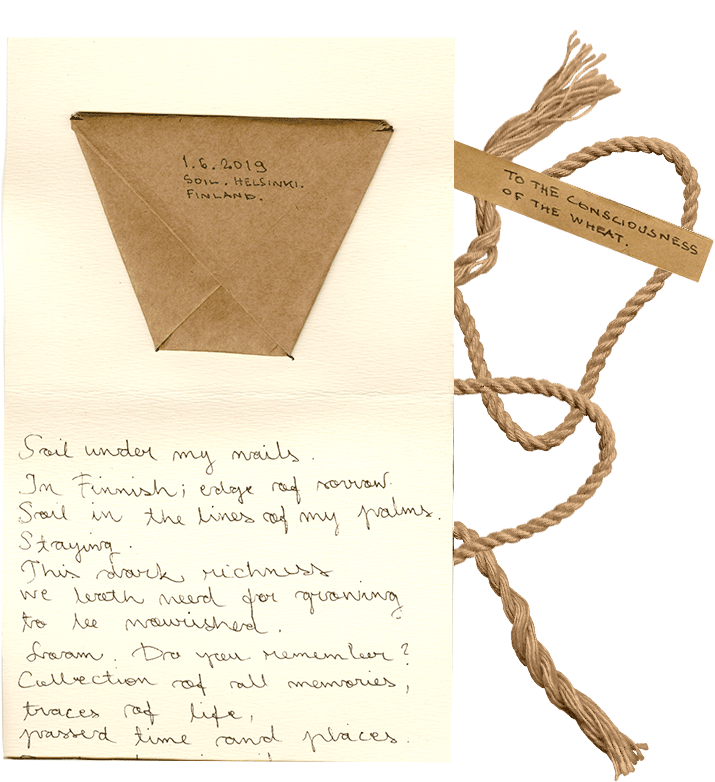 1.6.2019
SOIL. HELSINKI.
FINLAND.
TO THE CONSCIOUSNESS
OF THE WHEAT.
Soil under my nails.
In Finnish; edge of sorrow.
Soil in the lines of my palms.
Staying.
This dark richness
we both need for growing
to be nourished.
Loam. Do you remember?
Collection of all memories,
traces of life,
passed time and places.